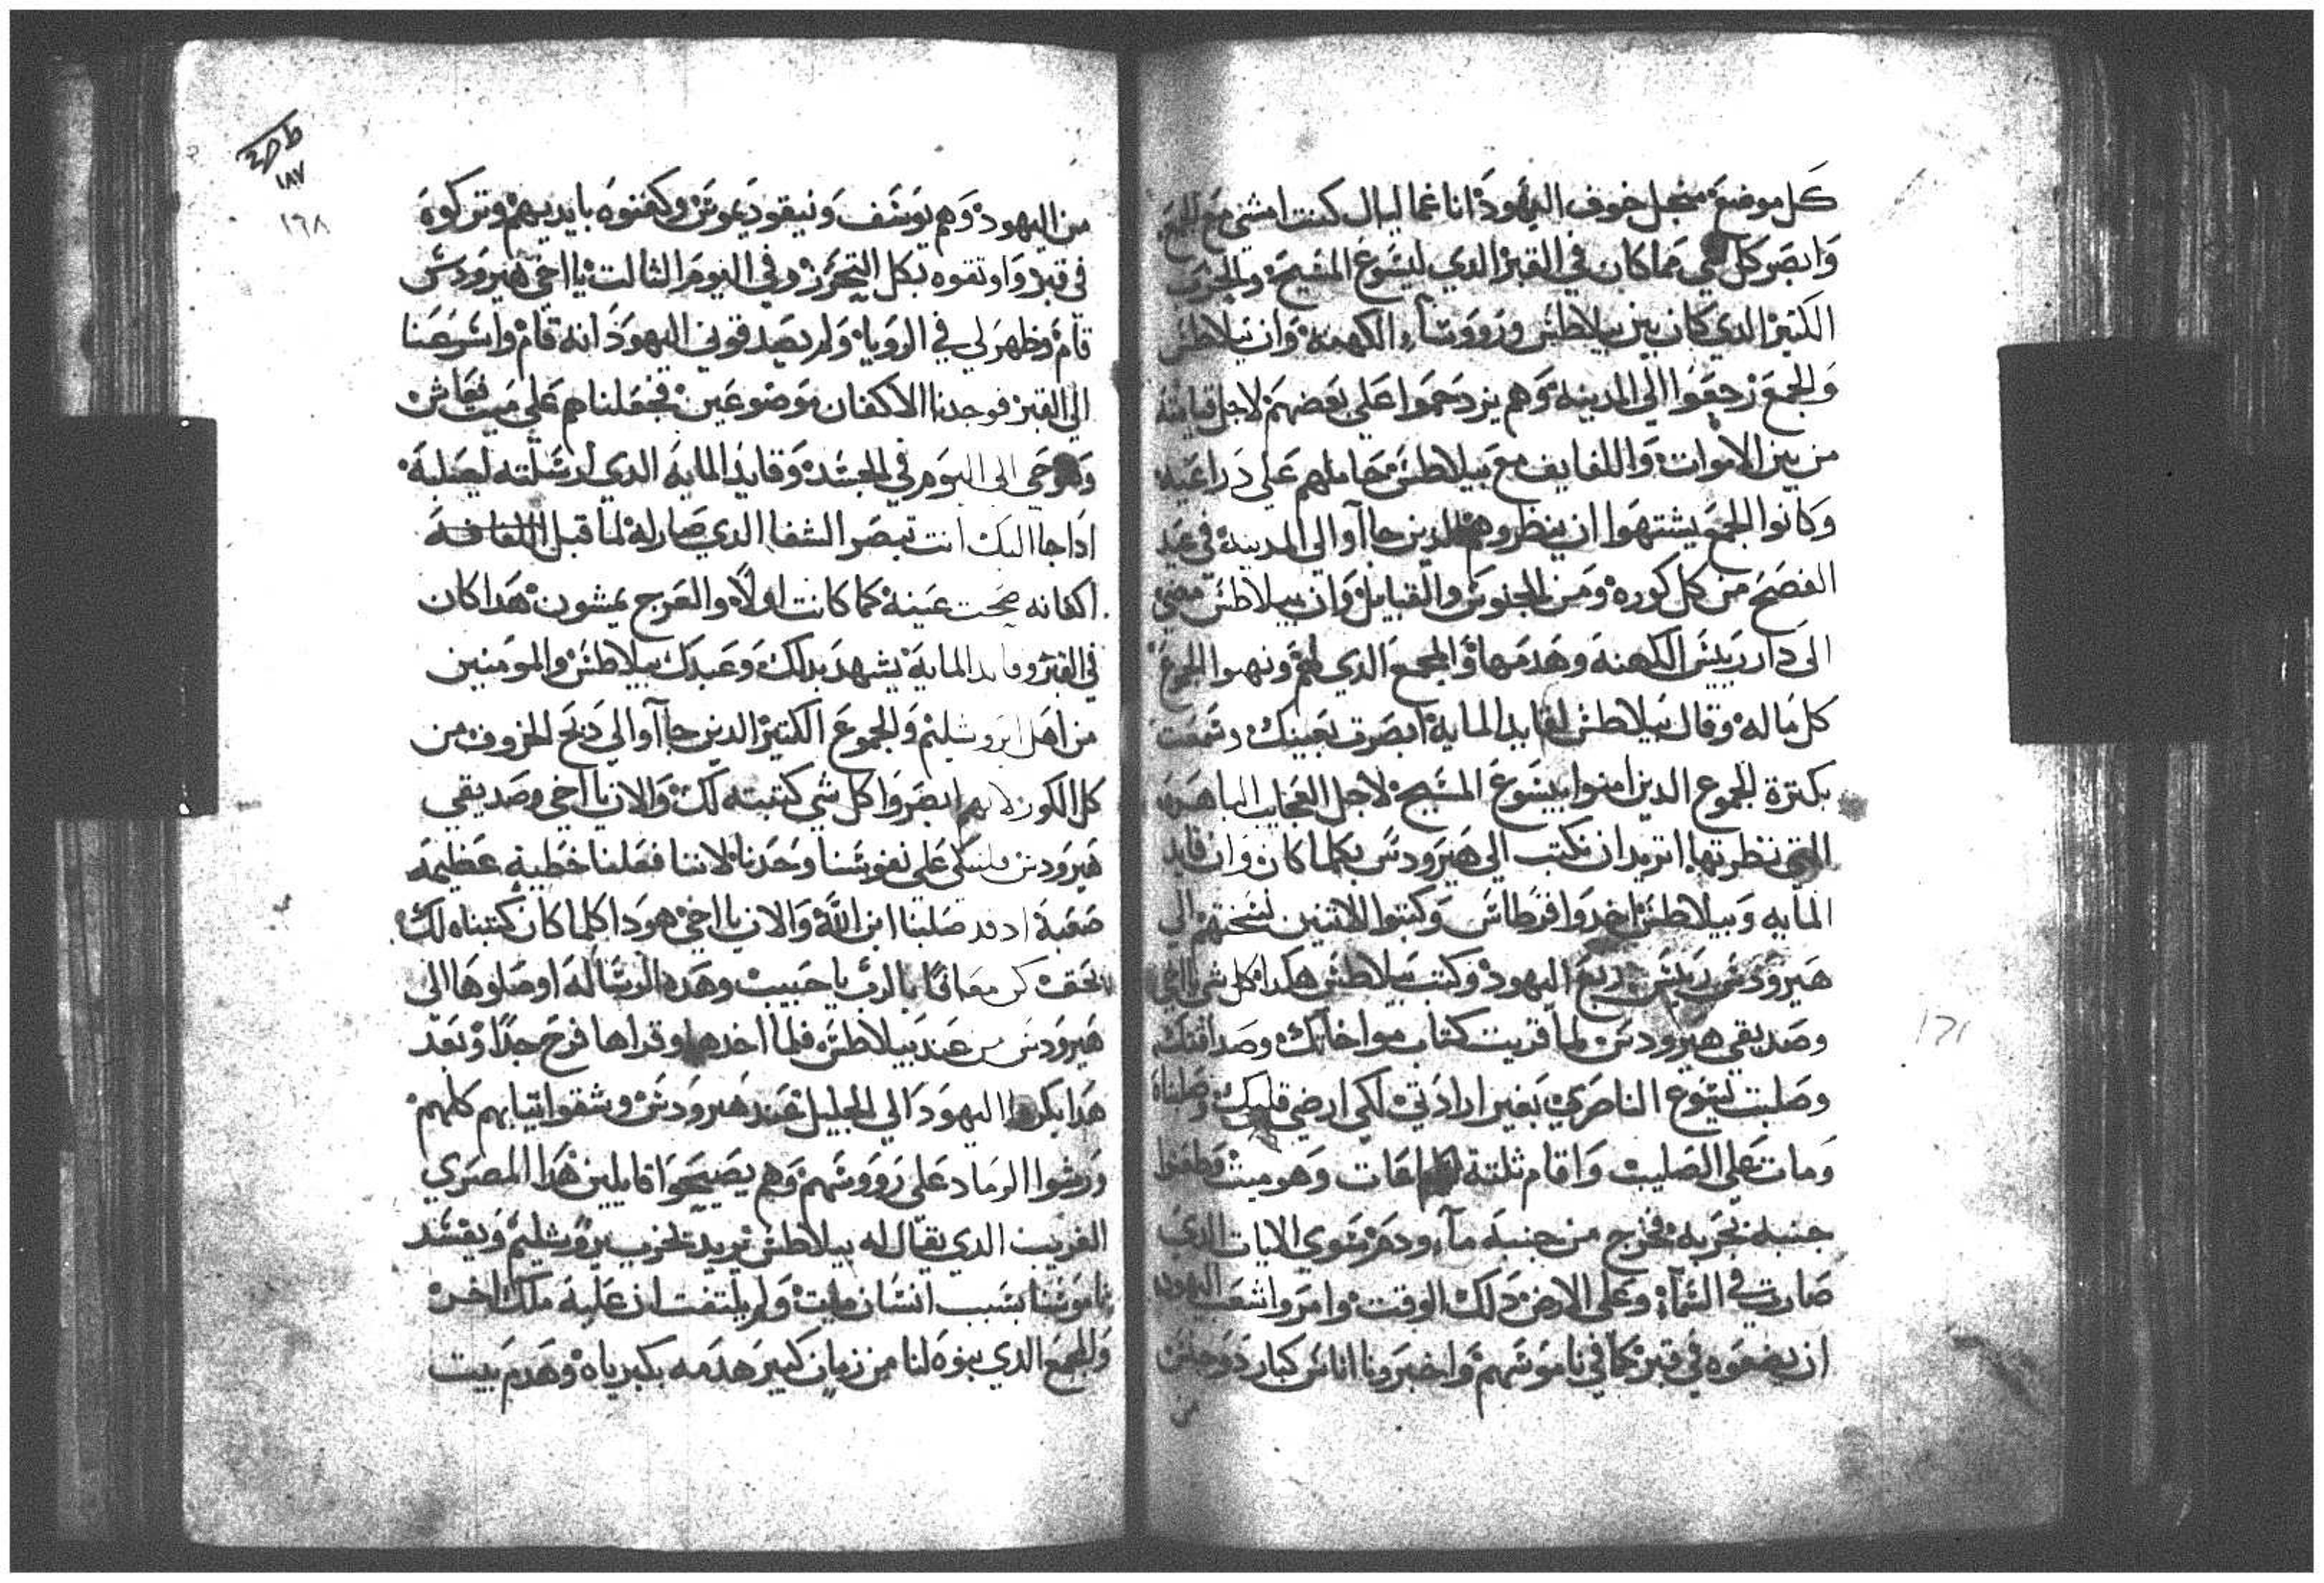 كل موضع من اجل خوف اليهود انا غماليال كنت امشي مع الجمع
وابصر كل شي مما كان في القبر الدي ليسوع المسيح والحرب
الكتير الدي كان بين بيلاطس وروساء الكهنه وان بيلاطس
والجمع رجعوا الى المدينه وهم يزدحموا على بعضهم لاجل قيامته
من بين الاموات واللفايف مع بيلاطس حاملهم على دراعيه
وكانوا الجمع يشتهوا ان ينظروهم الدين جاآوا الى المدينة في عيد
الفصح من كل كوره ومن الجنوس والقبايل وان بيلاطس مضى
الى دار رييس الكهنه وهدمها والمجمع الدي لهم ونهبوا الجموع
كل ماله وقال بيلاطس لقايد الماية ابصرت بعينك وسمعت
بكترة الجموع الدين امنوا بيسوع المسيح لاجل العجايب الباهره
التي نظرتها اتريد ان نكتب الى هيرودس بكلما كان وان قايد
المايه وبيلاطس اخدوا قرطاس وكتبوا الاتنين نسختهم الى
هيرودس رييس ربع اليهود وكتب بيلاطس هكدا كل شي يااخي
وصديقي هيرودس لما قريت كتاب مواخاتك وصداقتك
وصلبت يسوع الناصري بغير ارادتي لكي ارضي قلبك وصلبناه
ومات على الصليب واقام ثلتة ساعات وهو ميت وطعنوا
جنبه بحربه فخرج من جنبه مآء ودم سوى الايات الدي
صارت في السمآء وعلى الارض دلك الوقت وامروا شعب اليهود
ان يضعوه في قبر كما في ناموسهم واخبرونا اناس كبار دو جنس
من
١٨٧
١٦٨
من اليهود وهم يوسف ونيقوديموس وكفنوه بايديهم وتركوه
في قبر واوتقوه بكل التحرز وفي اليوم الثالت يااخي هيرودس
قام وظهر لي في الرويا ولم يصدقوني اليهود انه قام واسرعنا
الى القبر فوجدنا الاكفان موضوعين فجعلناهم على ميت فعاش
وهو حي الى اليوم في الجسد وقايد المايه الدي ارسلته لصلبه
اداجا اليك انت تبصر الشفا الدي صار له لما قبل اللفافه
اكفانه صحت عينه كما كانت اولًا والعرج يمشون هدا كان
في القبر وقايد المايه يشهد بدلك وعبدك بيلاطس والمومنين
من اهل ايروشليم والجموع الكتير الدين جاآوا الى دبح الخروف من
كل الكور لانهم ابصروا كل شي كتبته لك والان يااخي وصديقي
هيرودس فلنبكي على نفوسنا وحدنا لاننا فعلنا خطية عظيمه
صعبة اد قد صلبنا ابن الله والان يااخي هودا كلما كان كتبناه لك
كن معافًا بالرب ياحبيب وهده الرساله اوصلوها الى
هيرودس من عند بيلاطس فلما اخدها وقراها فرح جدًا وبعد
هدا بكروا اليهود الى الجليل عند هيرودس وشقوا تيابهم كلهم
ورشوا الرماد على رووسهم وهم يصيحوا قايلين هدا المصري
الغريب الدي يقال له بيلاطس يريد يخرب يروشليم ويفسد
ناموسنا بسبب انسان مايت ولم يلتفت ان عليه ملك اخر
والمجمع الدي بنوه لنا من زمان كبير هدمه بكبرياه وهدم بيت